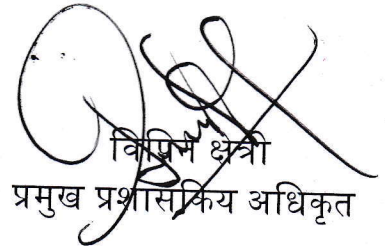 विपिन क्षेत्री
प्रमुख प्रशासकिय अधिकृत